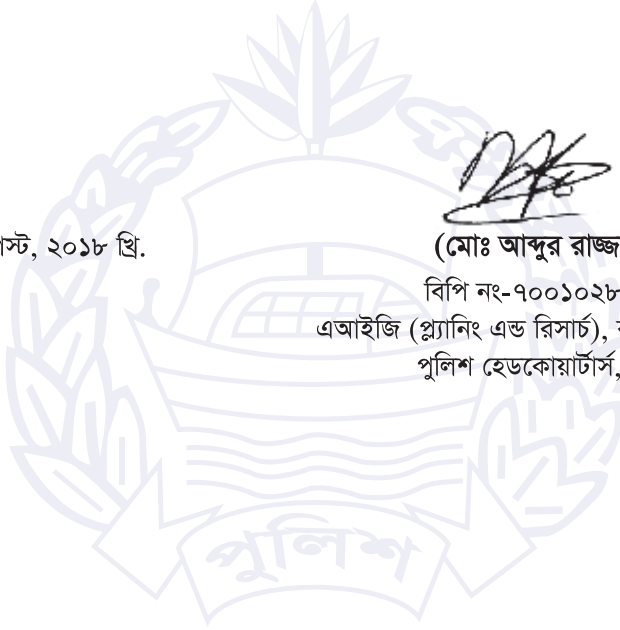 গস্ট, ২০১৮ খ্রি.
(মোঃ আব্দুর রাজ্জা
বিপি নং-৭০০১০২৮
এআইজি (প্ল্যানিং এন্ড রিসার্চ),
পুলিশ হেডকোয়ার্টার্স,
পুলিশ